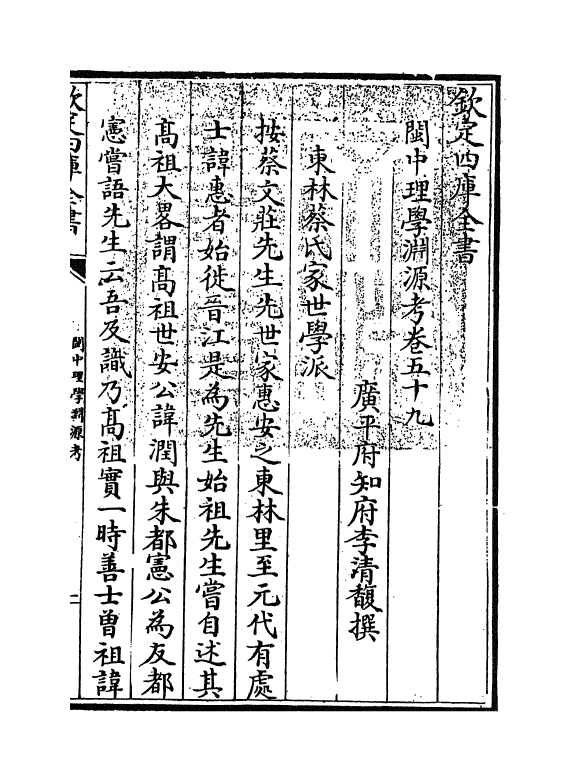 欽定四庫全書
閩中理學淵源考卷五十九
廣平府知府李清馥撰
東林蔡氏家世學派
按蔡文莊先生先世家惠安之東林里至元代有處
士諱惠者始徙晉江是為先生始祖先生嘗自述其
高祖大畧謂高祖世安公諱潤與朱都憲公為友都
憲嘗語先生云吾及識乃高祖實一時善士曾祖諱
欽定四庫全書
閩中理學淵源考
一